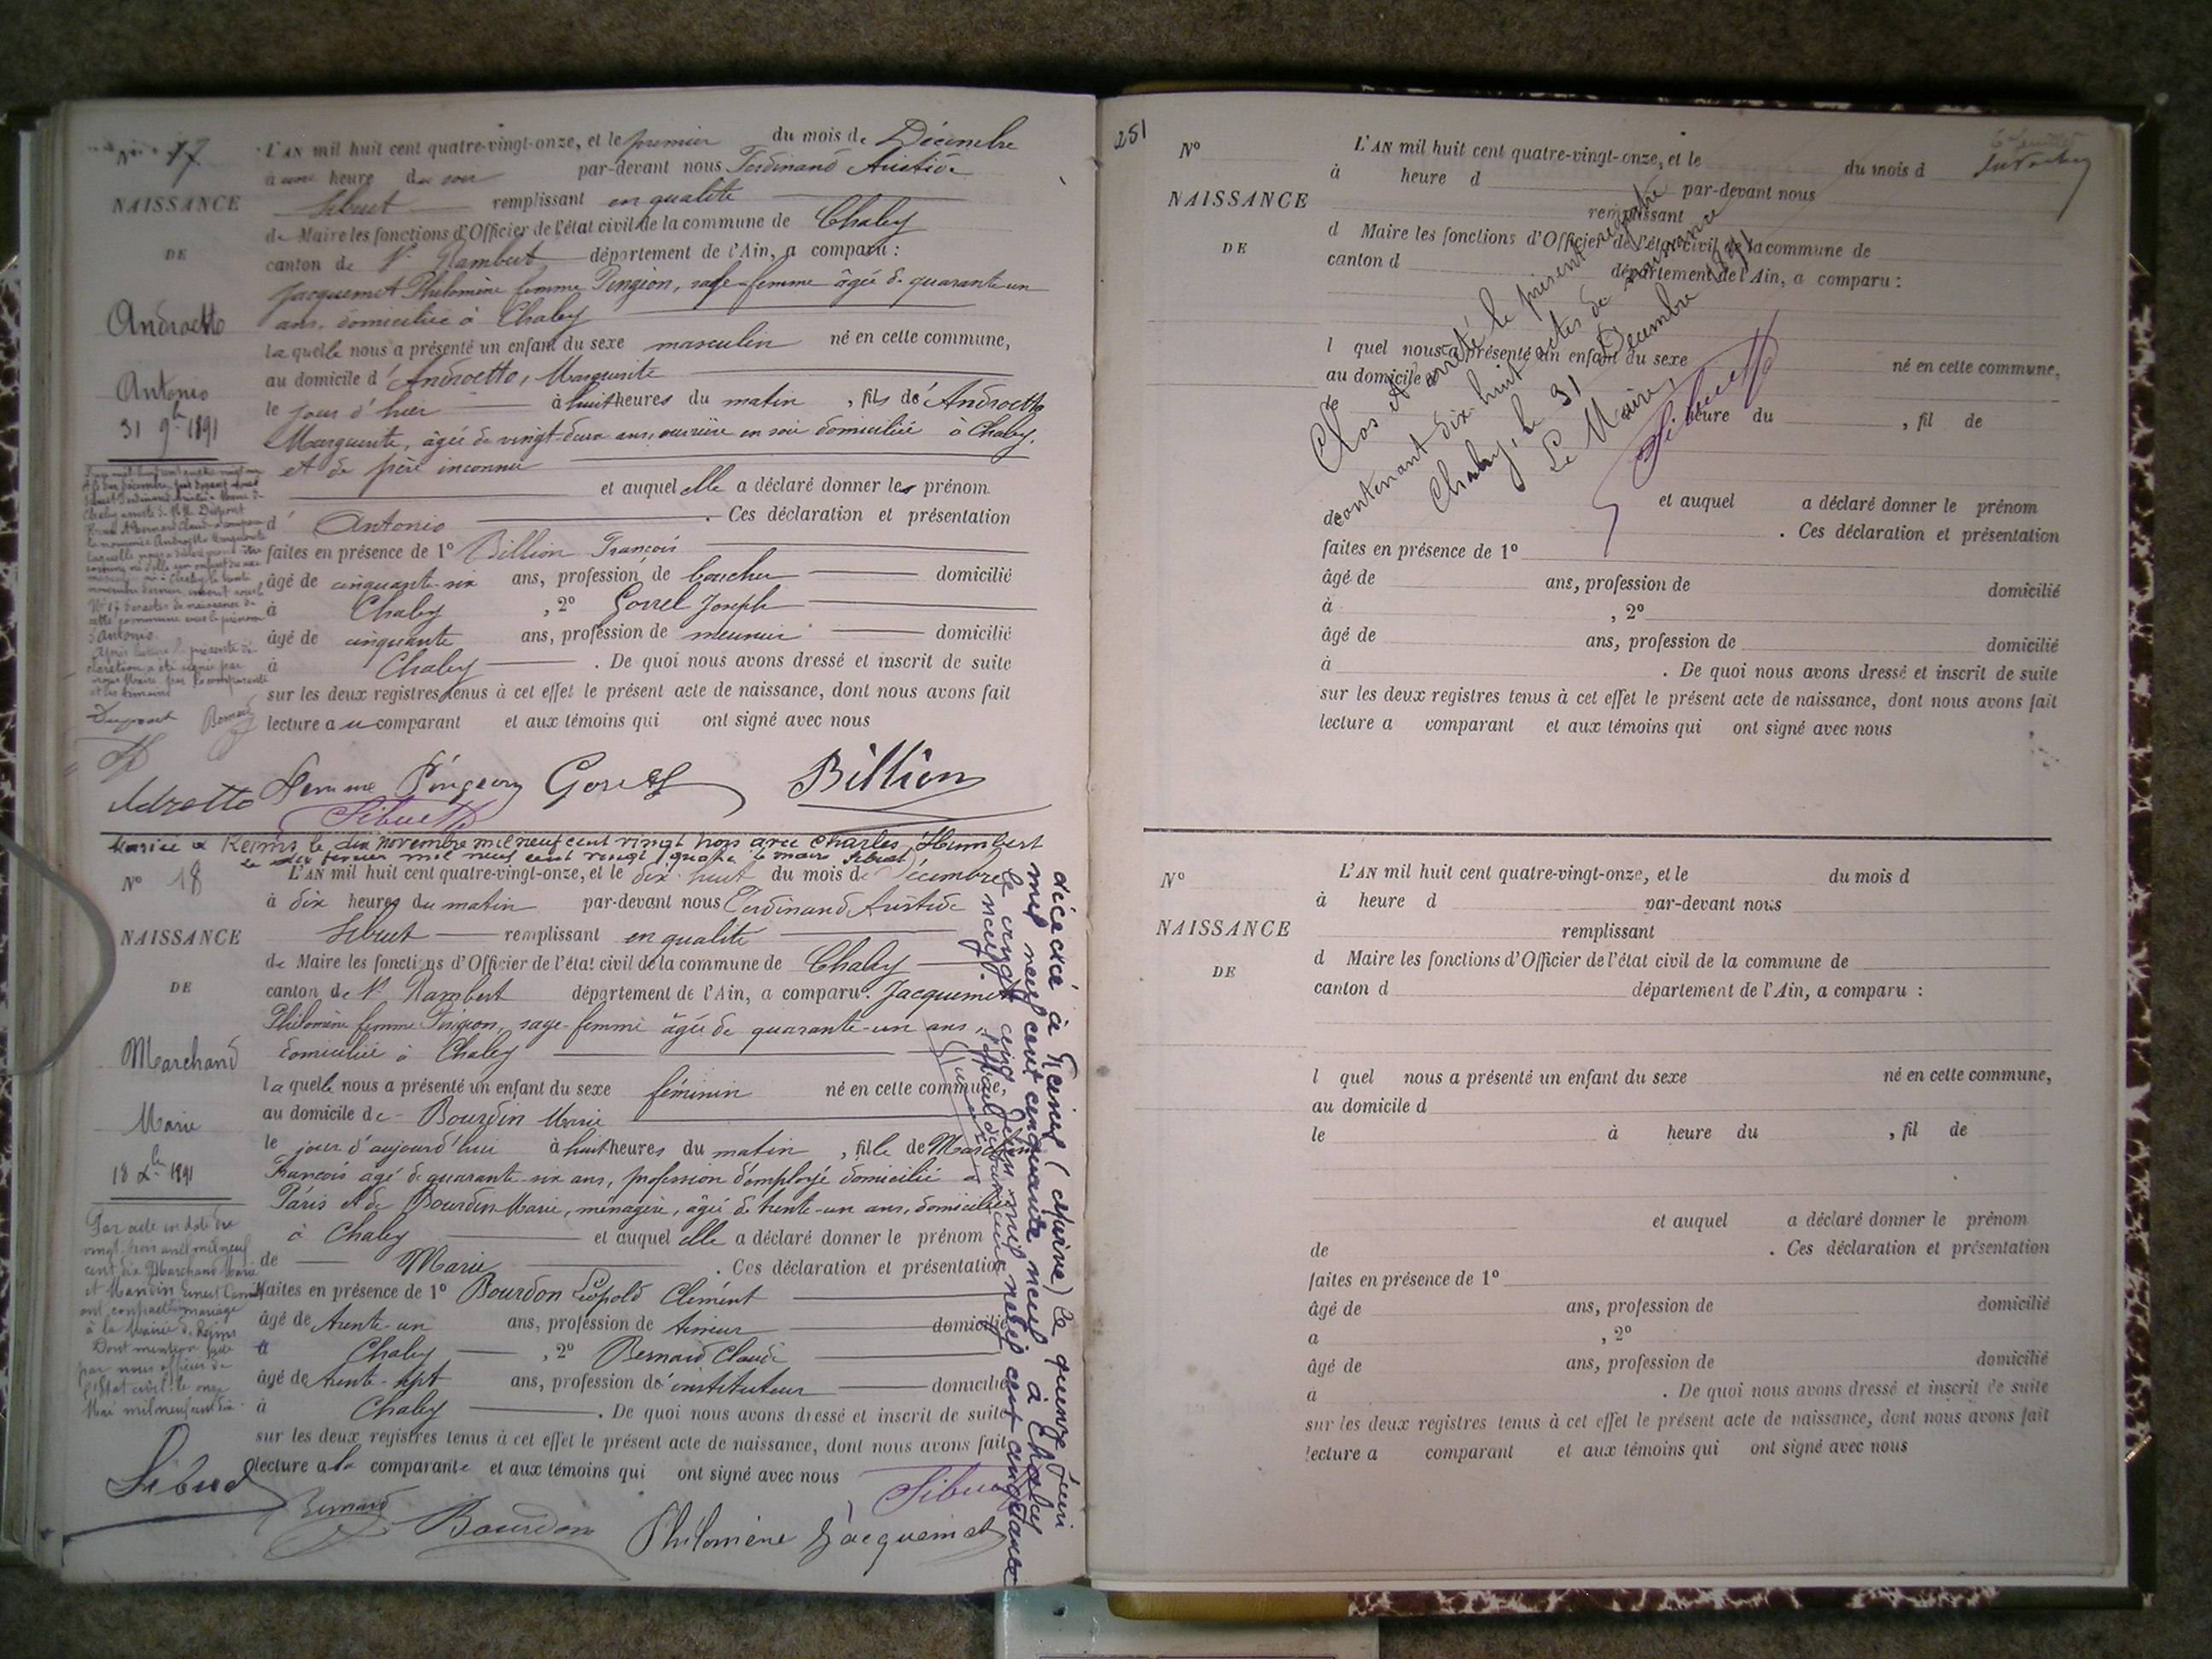 17
NAISSANCE
DE
Androetto
Antonio
31 9bre 1891
L'AN mil huit cent quatre-vingt-onze, et le premier du mois de Décembre
à une heure du soir par-devant nous Ferdinand Aristide
Sibuet remplissant en qualité
de Maire les fonctions d'Officier de l'état civil de la commune de Chaley
canton de St Rambert département de l'Ain, a comparu :
Jacquemet Philomène femme Pingeon, sage-femme âgée de quarante-un
ans, domiciliée à Chaley
laquelle nous a présenté un enfant du sexe masculin né en cette commune,
au domicile d'Androetto, Marguerite
le jour d'hier à huit heures du matin, fils de Androetto
Marguerite, âgée de vingt-deux ans, ouvrière en soie domiciliée à Chaley,
et de père inconnu
et auquel elle a déclaré donner les prénom
d' Antonio . Ces déclaration et présentation
faites en présence de 1º Billion François
âgé de cinquante-six ans, profession de boucher domicilié
à Chaley , 2º Gorrel Joseph
âgé de cinquante ans, profession de meunier domicilié
à Chaley . De quoi nous avons dressé et inscrit de suite
sur les deux registres tenus à cet effet le présent acte de naissance, dont nous avons fait
lecture au comparant et aux témoins qui ont signé avec nous
cette commune sous le prénom
d'Antonio.
Après lecture la présente dé-
claration a été signée par
nous Maire, par la comparante
et les témoins
Dupont Bernard
Femme Pingeon Billion
Sibuet
Mariée à Reims le dix novembre mil neuf cent vingt trois avec Charles Humbert
le dix février mil neuf cent vingt quatre le maire Sibuet
Nº 18
NAISSANCE
DE
Marchand
Marie
18 Xbre 1891
L'AN mil huit cent quatre-vingt-onze, et le dix-huit du mois de Décembre
à dix heures du matin par-devant nous Ferdinand Aristide
Sibuet remplissant en qualité
de Maire les fonctions d'Officier de l'état civil de la commune de Chaley
canton de St Rambert département de l'Ain, a comparu : Jacquemet
Philomène femme Pingeon, sage-femme âgée de quarante-un ans,
domiciliée à Chaley
laquelle nous a présenté un enfant du sexe féminin né en cette commune,
au domicile de Bourdin Marie
le jour d'aujourd'hui à huit heures du matin, fille de Marchand
François âgé de quarante-six ans, profession d'employé domicilié à
Paris et de Bourdin Marie, ménagère, âgée de trente-un ans, domiciliée
à Chaley et auquel elle a déclaré donner le prénom
de Marie . Ces déclaration et présentation
faites en présence de 1º Bourdon Léopold Clément
âgé de trente-un ans, profession de domicilié
à Chaley , 2º Bernard Claude
âgé de trente-sept ans, profession d'instituteur domicilié
à Chaley . De quoi nous avons dressé et inscrit de suite
sur les deux registres tenus à cet effet le présent acte de naissance, dont nous avons fait
lecture à la comparante et aux témoins qui ont signé avec nous
Par acte en date du
vingt-trois avril mil neuf
cent dix Marchand Marie
et Mandin Ernest Camille
ont contracté mariage
à la Mairie de Reims
Dont mention faite
par nous officier de
l'Etat civil le onze
Mai mil neuf cent dix.
Sibuet
Bernard Bourdon Philomène Jacquemet Sibuet
décédée à Reims (Marne) le quinze Juin
mil neuf cent cinquante neuf à Chaley
le vingt cinq Juin mil neuf cent cinquante
neuf.
251
Nº
NAISSANCE
DE
L'AN mil huit cent quatre-vingt-onze, et le du mois d
à heure d par-devant nous
remplissant
d Maire les fonctions d'Officier de l'état civil de la commune de
canton d département de l'Ain, a comparu :
l quel nous a présenté un enfant du sexe né en cette commune,
au domicile d
le heure du , fil de
et auquel a déclaré donner le prénom
de . Ces déclaration et présentation
faites en présence de 1º
âgé de ans, profession de domicilié
à , 2º
âgé de ans, profession de domicilié
à . De quoi nous avons dressé et inscrit de suite
sur les deux registres tenus à cet effet le présent acte de naissance, dont nous avons fait
lecture a comparant et aux témoins qui ont signé avec nous
Clos et arrêté le présent registre
contenant dix-huit actes de naissance
Chaley, le 31 Décembre 1891
Le Maire,
Sibuet
Nº
NAISSANCE
DE
L'AN mil huit cent quatre-vingt-onze, et le du mois d
à heure d par-devant nous
remplissant
d Maire les fonctions d'Officier de l'état civil de la commune de
canton d département de l'Ain, a comparu :
l quel nous a présenté un enfant du sexe né en cette commune,
au domicile d
le à heure du , fil de
et auquel a déclaré donner le prénom
de . Ces déclaration et présentation
faites en présence de 1º
âgé de ans, profession de domicilié
a , 2º
âgé de ans, profession de domicilié
a . De quoi nous avons dressé et inscrit de suite
sur les deux registres tenus à cet effet le présent acte de naissance, dont nous avons fait
lecture a comparant et aux témoins qui ont signé avec nous